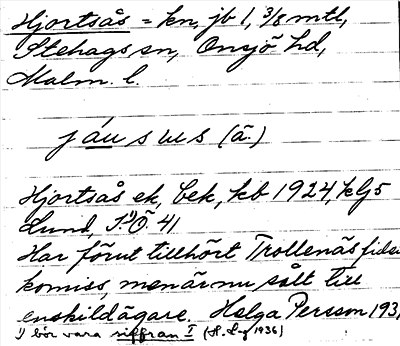 Hjortsås = kn, jb 1, 3/8 mtl,
Stehags sn, Onsjö hd,
Malm. l.
Hjortsås ek, bek, kb 1924, klj 5
Lund, S.¹⁾Ö. 41
Har förut tillhört Trollenäs fidei
komiss, men är nu sålt till
enskild ägare. Helga Persson 193
1) bör vara siffran I (H. L-g 1936)